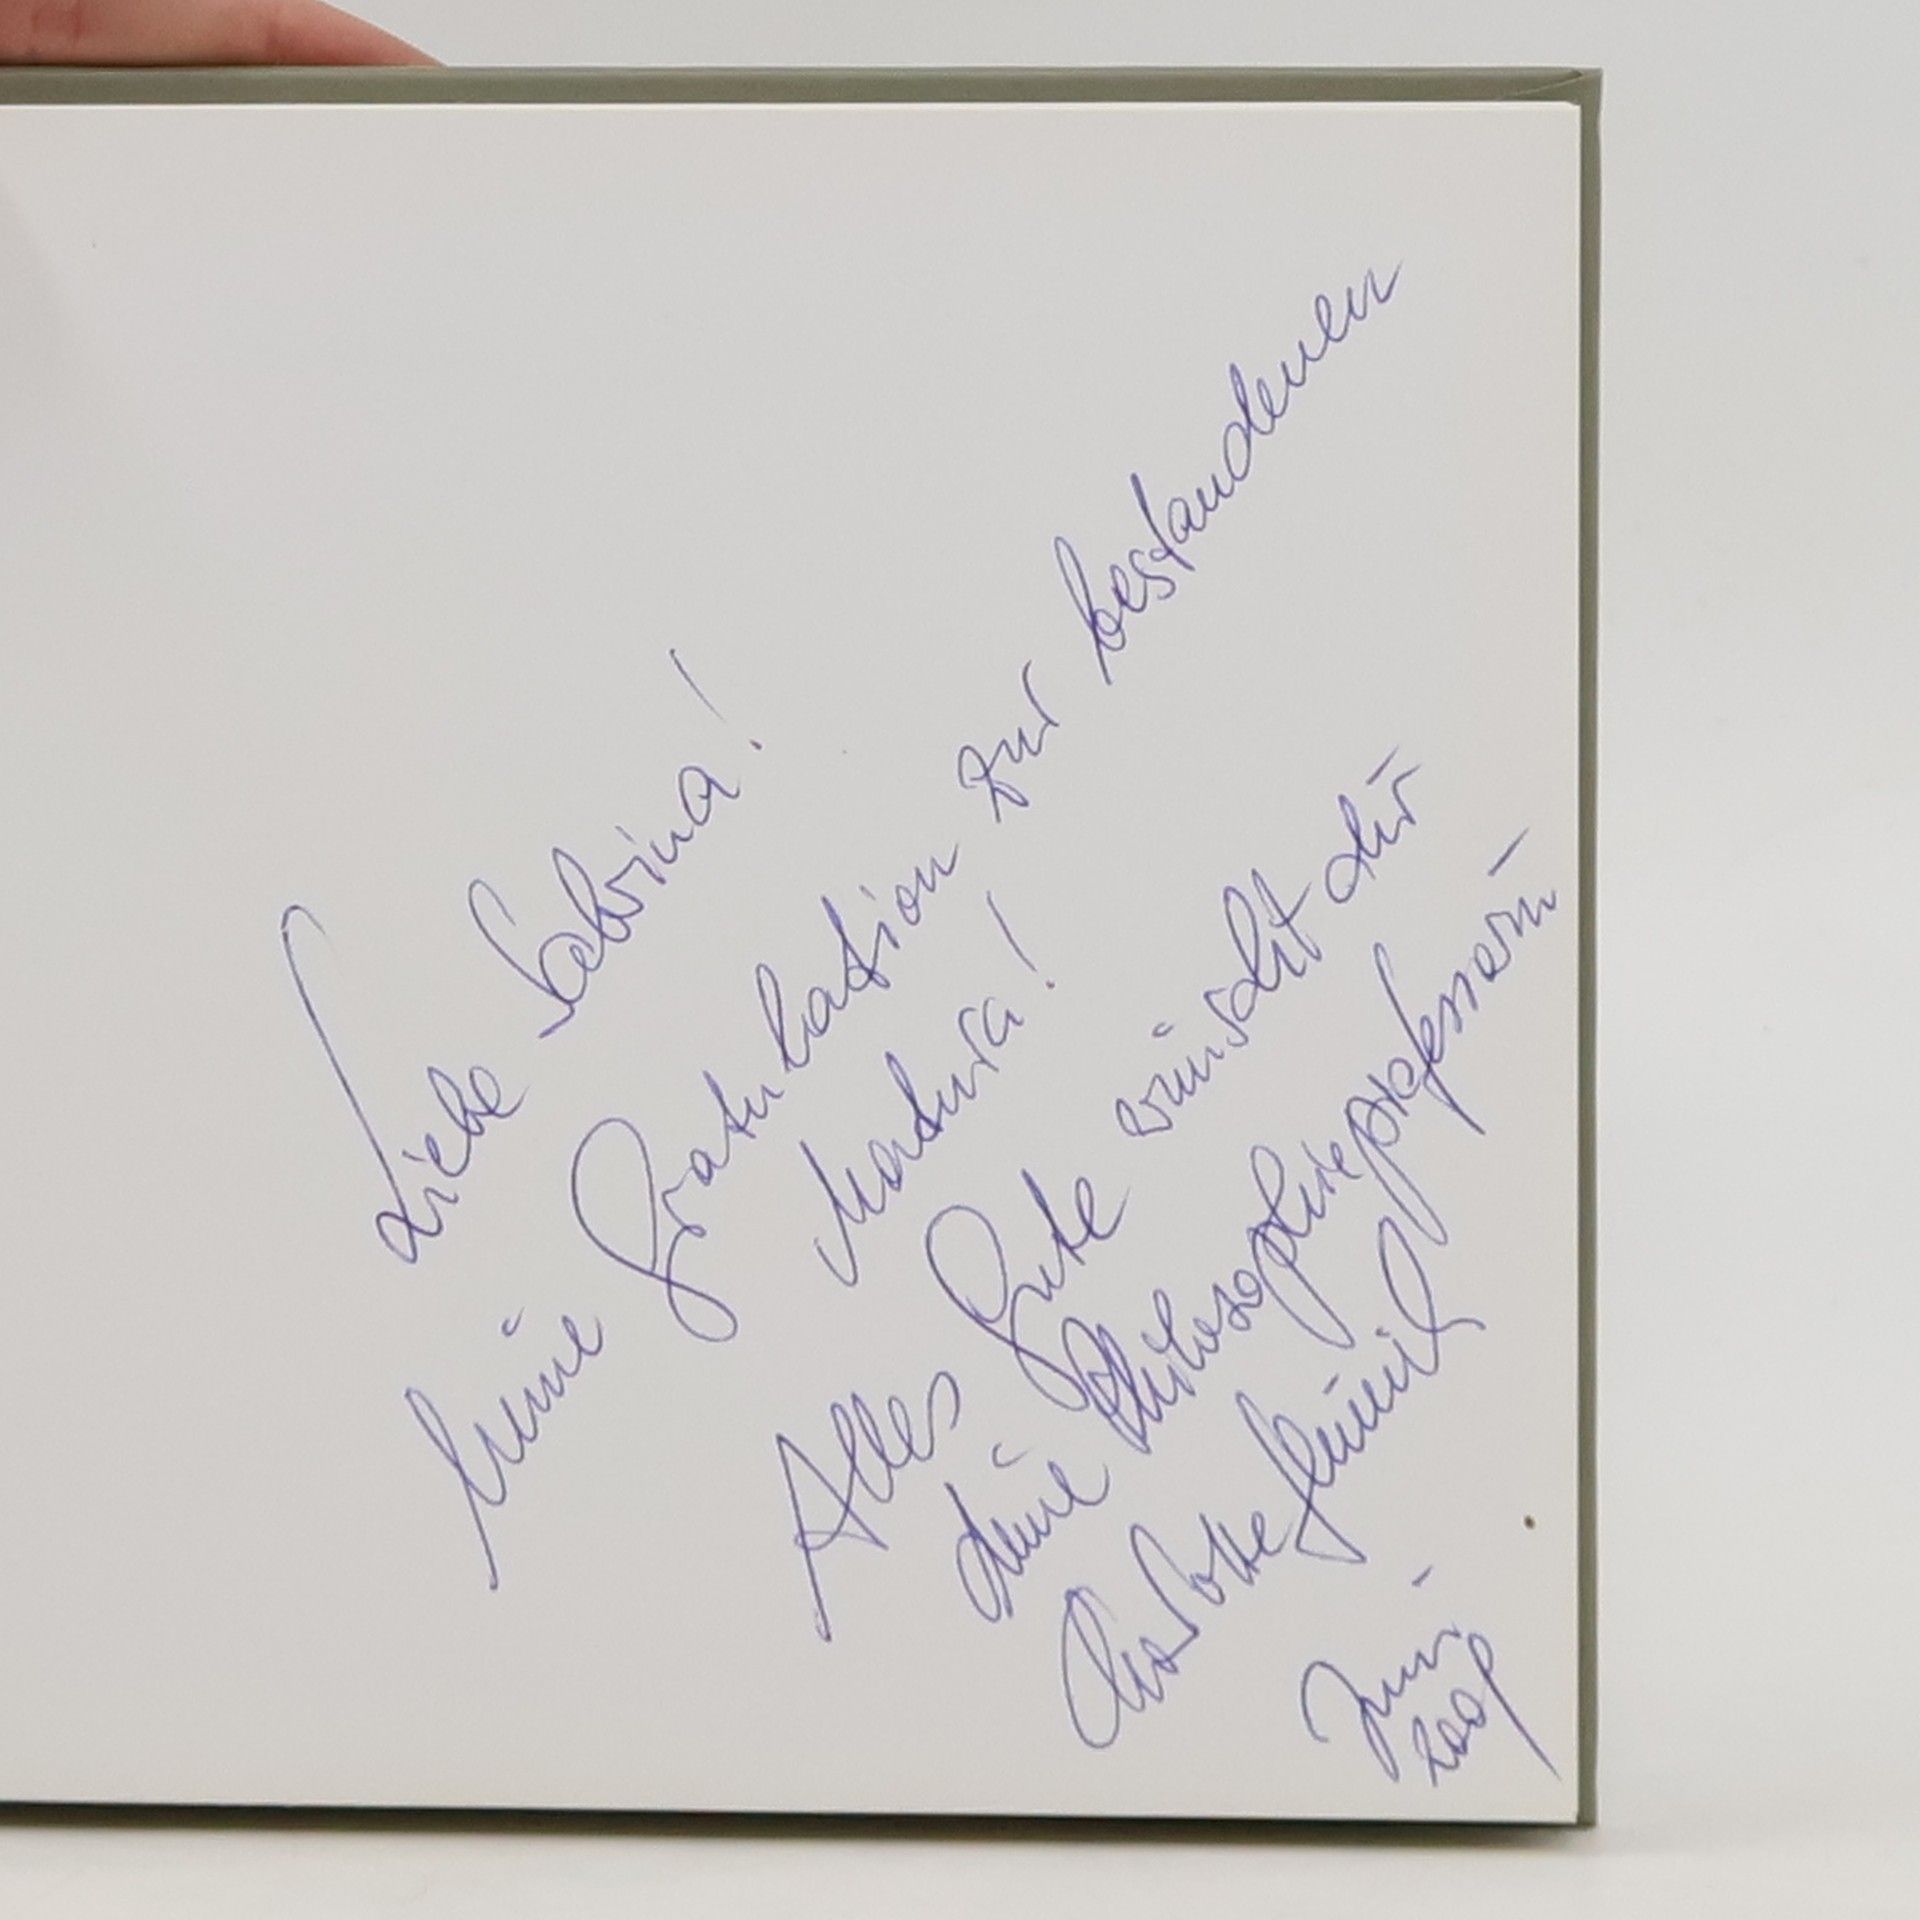 Liebe Sabrina!
Meine Gratulation zur bestandenen
Matura!
Alles Gute wünscht dir
deine Philosophieprofessorin
Juni
2009